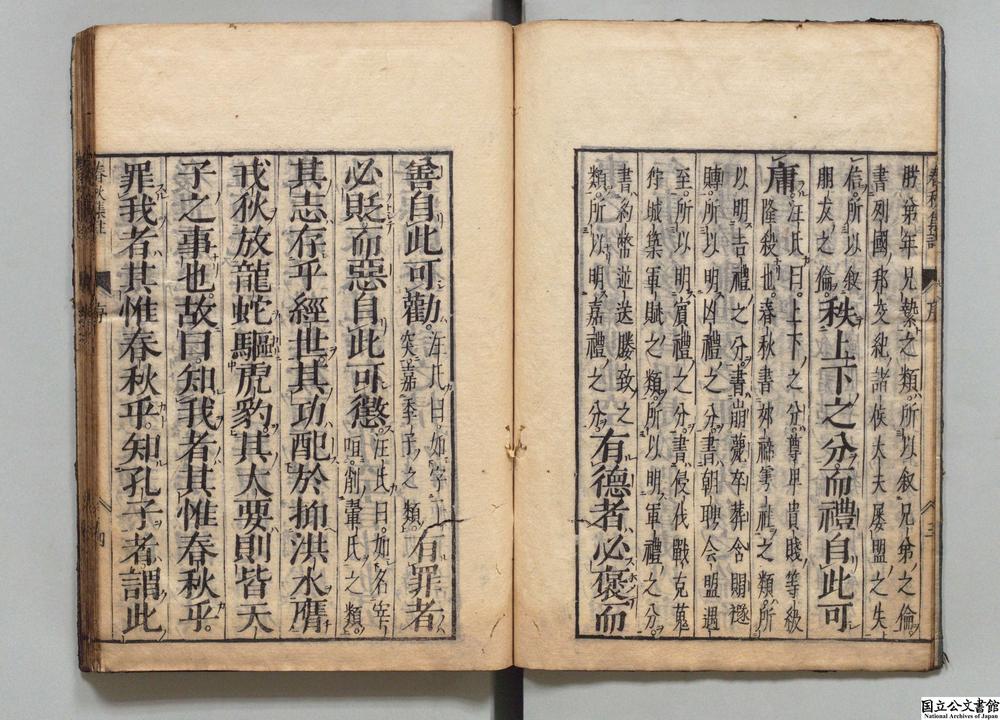 春秋集註 序 三
勝弟年兄縶之類。所以叙兄弟之倫。
書列國邦交紀諸侯大夫屢盟之失
信。所以叙
朋友之倫
秩上下之分。而禮自此可
庸。
汪氏曰。上下之分。尊卑貴賤等級
隆殺也。春秋書郊禘雩社之類。所
以明吉禮之分。書崩薨卒葬含賵襚
賻。所以明凶禮之分。書朝聘會盟遇
至。所以明賓禮之分。書侵伐戰克蒐
狩城築軍賦之類。所以明軍禮之分。
書納幣逆送媵致之
類。所以明嘉禮之分。
有德者必褒。而
善自此可勸。
汪氏曰。如字王
突嘉季子之類。
有罪者
必貶。而惡自此可懲。
汪氏曰。如名宰
咺。削翬氏之類。
其志存乎經世。其功配於抑洪水。膺
戎狄。放龍蛇。驅虎豹。其大要則皆天
子之事也。故曰。知我者其惟春秋乎。
罪我者其惟春秋乎。知孔子者。謂此
春秋集註 序 四
国立公文書館
National Archives of Japan